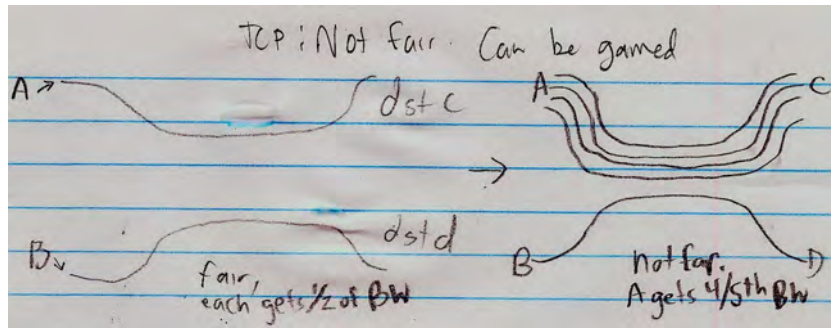 TCP: Not fair. Can be gamed
A
dst c
A
C
B
dst d
fair,
each gets 1/2 of BW
B
D
not far.
A gets 4/5th BW